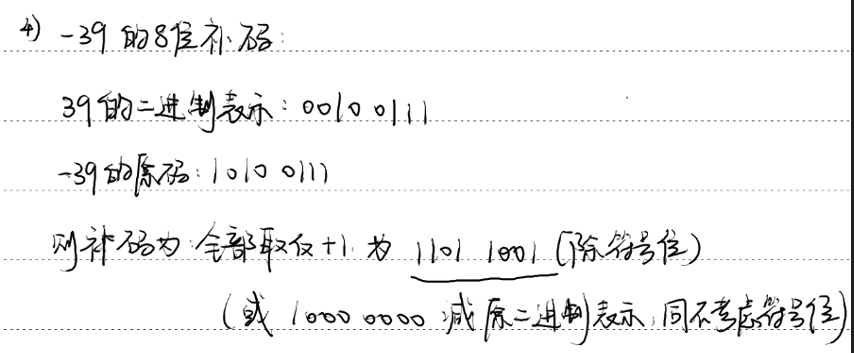 4) -39的8位补码:
39的二进制表示: 0010 0111
-39的原码: 1010 0111
则补码为: 全部取反+1, 为 1101 1001 (除符号位)
(或 1000 0000 减原二进制表示, 同不考虑符号位)